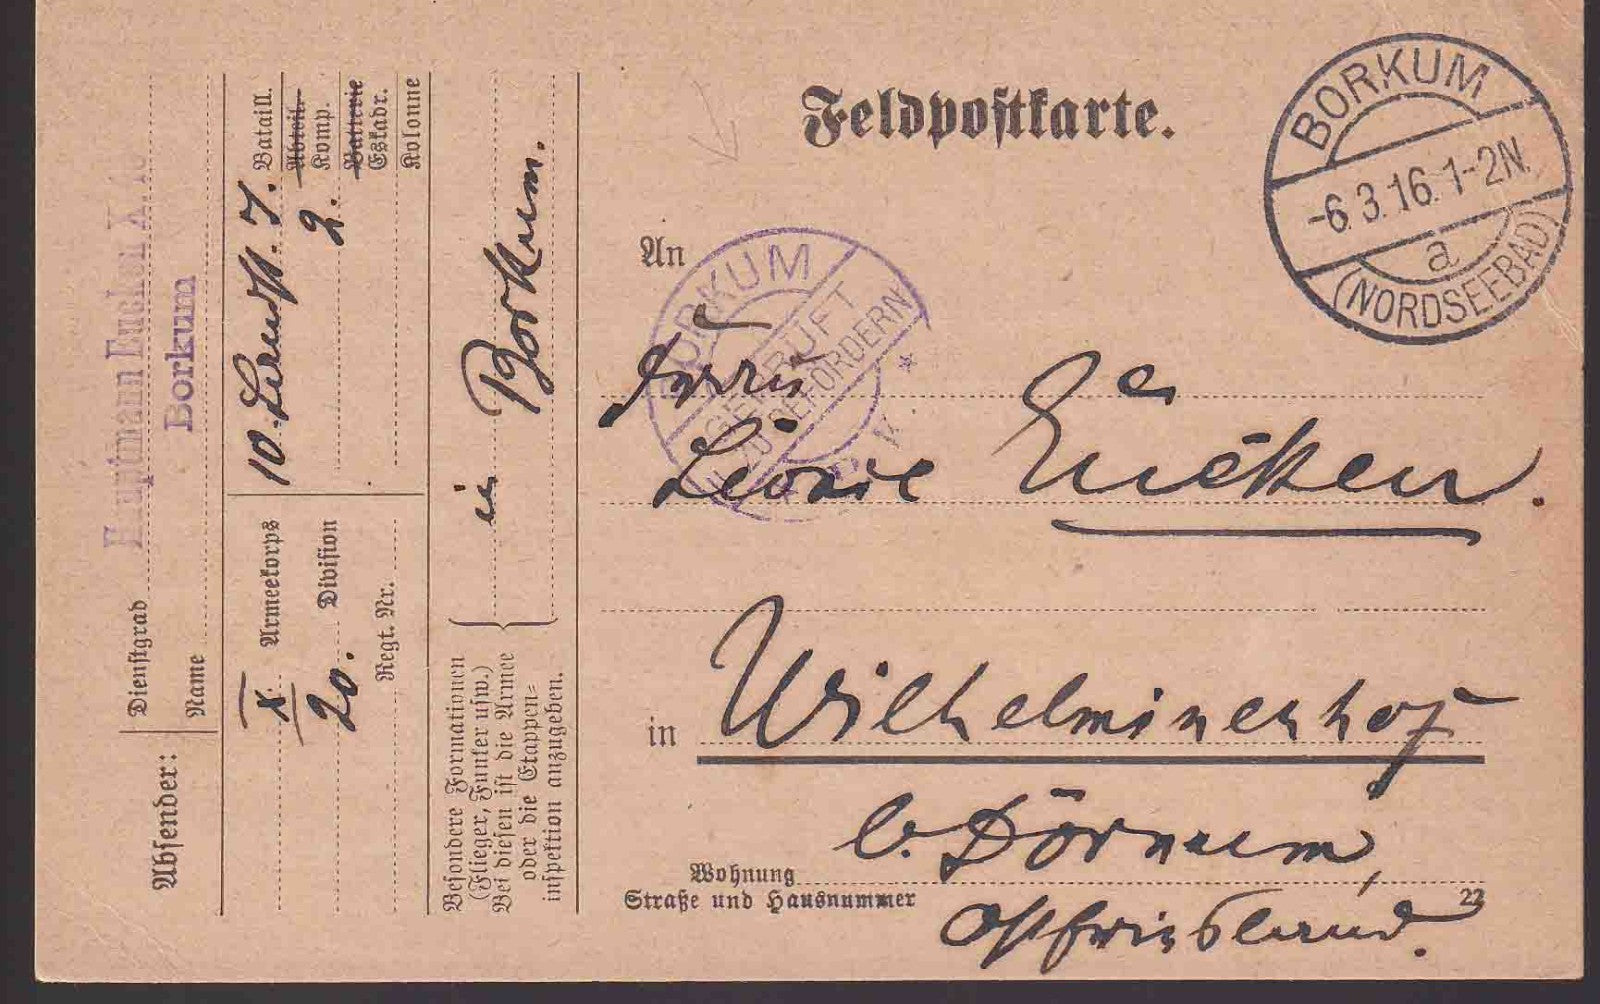 Feldpostkarte.
BORKUM
-6.3.16.1-2N.
a
(NORDSEEBAD)
An
BORKUM
GEPRÜFT
ZU BEFÖRDERN
Herrn
Eucken.
in Wilhelminenhof
b. Dornum,
Wohnung
Straße und Hausnummer
22
Ostfriesland.
Absender:
Dienstgrad Hauptmann
Name Borkum
X Armeekorps
20. Division
Regt. Nr.
10. Landst. 7. Bataill.
Abteil.
2. Komp.
Batterie
Eskadr.
Kolonne
Besondere Formationen
(Flieger, Funker usw.)
Bei diesen ist die Armee
oder die Etappen-
inspektion anzugeben.
in Borkum.